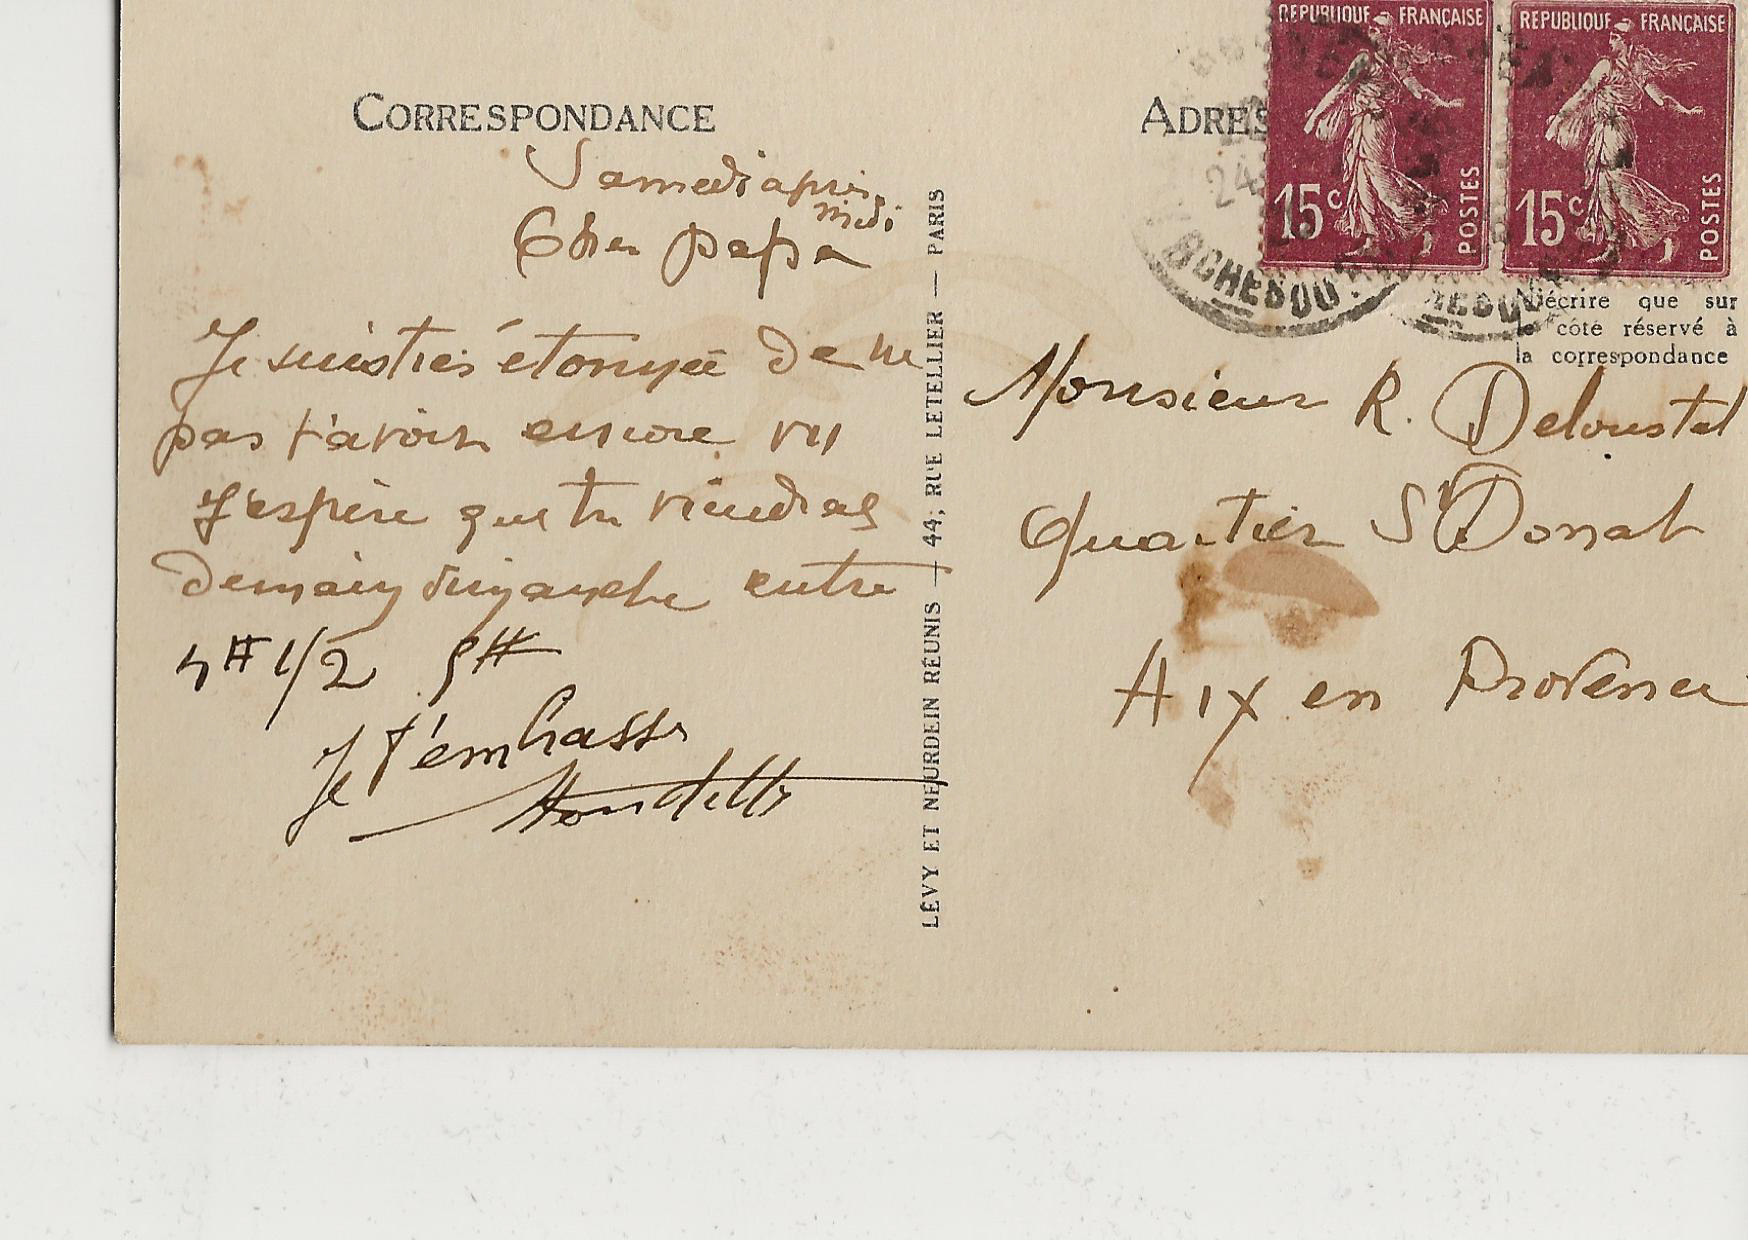 CORRESPONDANCE
Samedi après
midi
Cher papa
Je suis très étonnée de ne
pas t'avoir encore vu
J'espère que tu viendras
demain dimanche entre
4H 1/2 5H
Je t'embrasse
LÉVY ET NEURDEIN RÉUNIS — 44, RUE LETELLIER — PARIS
ADRES
REPUBLIQUE FRANÇAISE
15c
POSTES
REPUBLIQUE FRANÇAISE
15c
POSTES
24
BCHEDOU
écrire que sur
côté réservé à
la correspondance
Monsieur R. Deloustal
Quartier St Donat
Aix en Provence